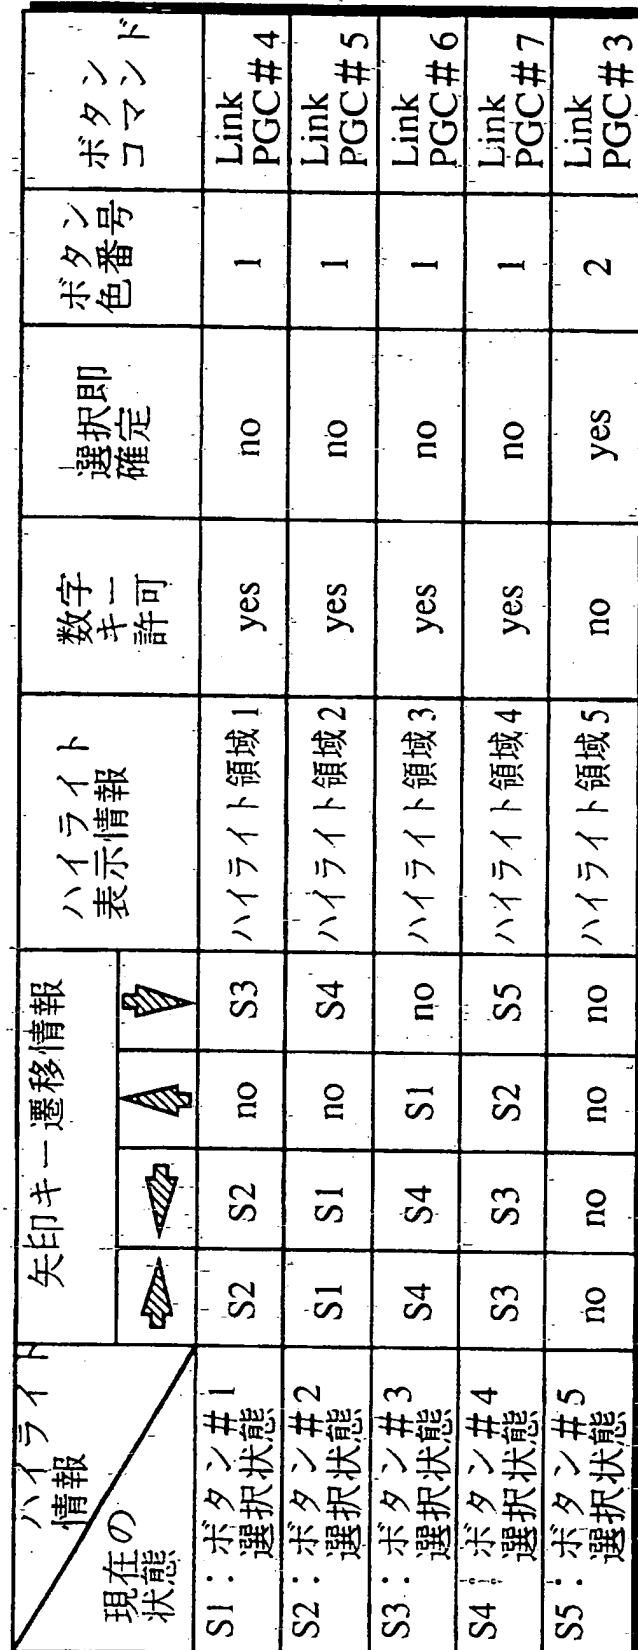 ハイライト
情報
現在の
状態
矢印キー遷移情報
ハイライト
表示情報
数字
キー
許可
選択即
確定
ボタン
色番号
ボタン
コマンド
S1:ボタン#1
選択状態
S2
S2
no
S3
ハイライト領域1
yes
no
1
Link
PGC#4
S2:ボタン#2
選択状態
S1
S1
no
S4
ハイライト領域2
yes
no
1
Link
PGC#5
S3:ボタン#3
選択状態
S4
S4
S1
no
ハイライト領域3
yes
no
1
Link
PGC#6
S4:ボタン#4
選択状態
S3
S3
S2
S5
ハイライト領域4
yes
no
1
Link
PGC#7
S5:ボタン#5
選択状態
no
no
no
no
ハイライト領域5
no
yes
2
Link
PGC#3